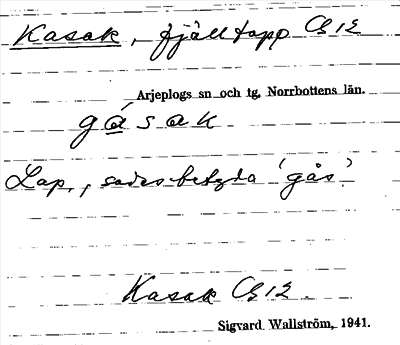 Kasak, fjälltopp C12
Arjeplogs sn och tg. Norrbottens län.
gásak
Lap., sades betyda 'gås'.
Kasak C12.
Sigvard Wallström, 1941.